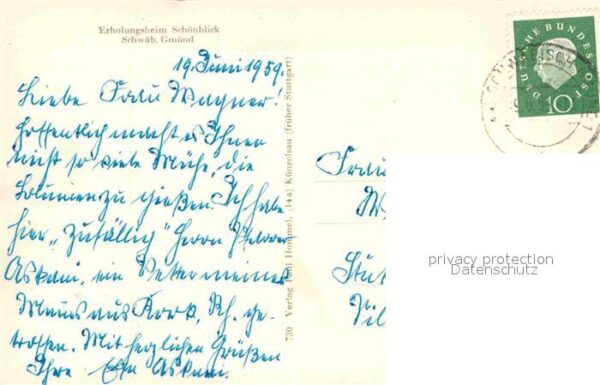 Erholungsheim Schönblick
Schwäb. Gmünd
19. Juni 1959.
Liebe Frau Wagner.
Hoffentlich macht es Ihnen
nicht so viele Mühe, die
Blumen zu gießen. Ich habe
hier „Zufällig" Herrn Pfarrer
Askani, ein Vetter meines
Manns aus Kork, Kh. ge-
troffen. Mit herzlichen Grüßen
Ihre Askani.
730 Verlag Paul Hommel, (14a) Künzelsau (früher Stuttgart)
DEUTSCHE BUNDESPOST
10
SCHWÄBISCH
Frau
W
Stut
privacy protection
Datenschutz